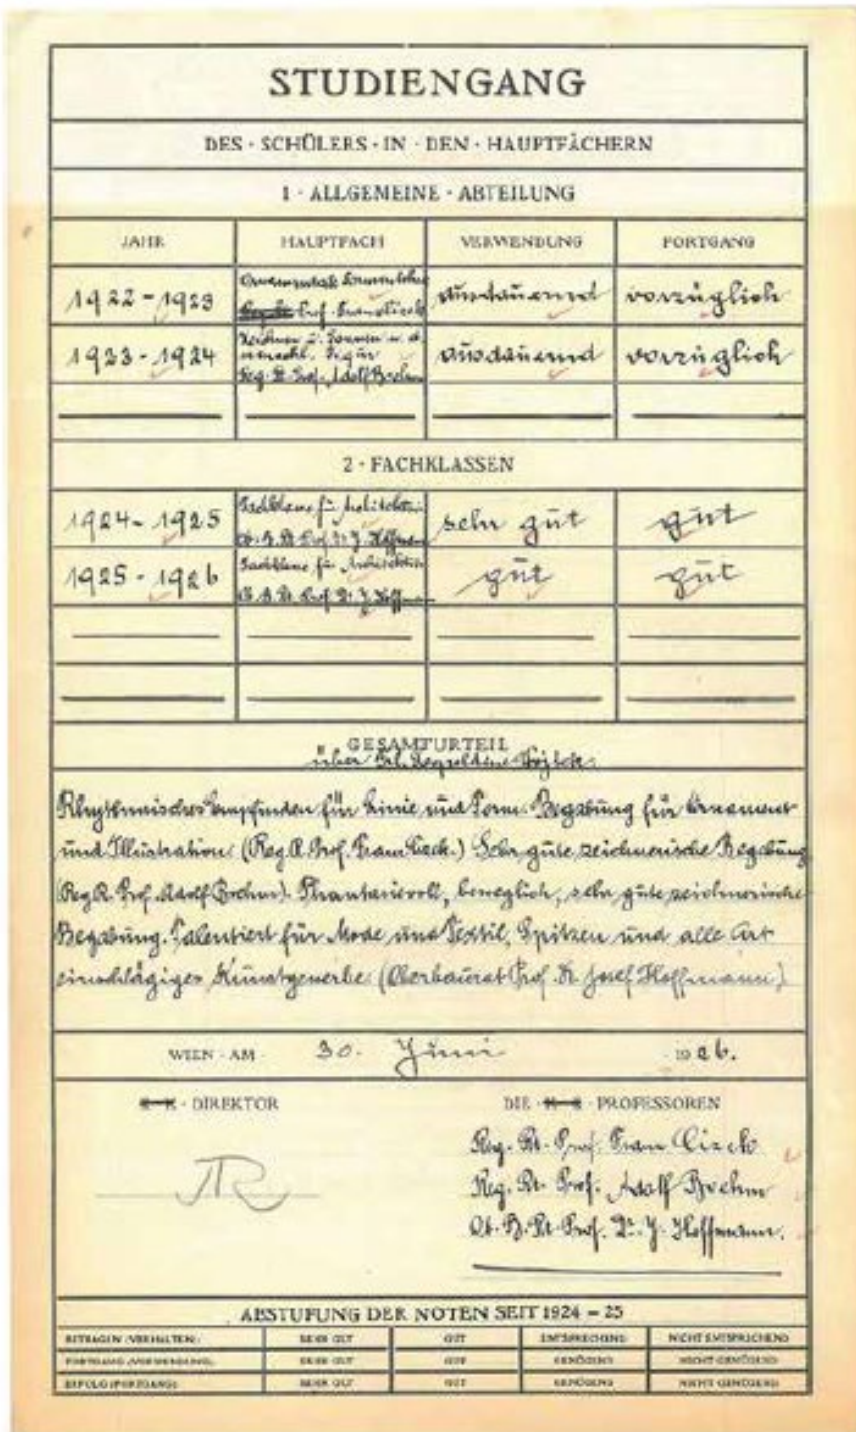 STUDIENGANG
DES · SCHÜLERS · IN · DEN · HAUPTFÄCHERN
1 · ALLGEMEINE · ABTEILUNG
JAHR HAUPTFACH VERWENDUNG FORTGANG
1922-1923 Ornamentale Formenlehre ausdauernd vorzüglich
Prof.
1923-1924 Zeichnen u. Formen n. d. ausdauernd vorzüglich
menschl. Figur
Reg. Rt. Prof. Adolf Boehm
2 · FACHKLASSEN
1924-1925 Fachklasse für Architektur sehr gut gut
Ob. B. Rt. Prof. Dr. J. Hoffmann
1925-1926 Fachklasse für Architektur gut gut
Ob. B. Rt. Prof. Dr. J. Hoffmann
GESAMTURTEIL
über Frl. Leopoldine
Rhythmisches Empfinden für Linie und Form. Begabung für Ornament
und Illustration. (Reg. R. Prof. Franz Cizek.) Sehr gute zeichnerische Begabung
(Reg. R. Prof. Adolf Boehm). Phantasievoll, beweglich, sehr gute zeichnerische
Begabung. Talentiert für Mode und Textil, Spitzen und alle Art
einschlägiges Kunstgewerbe. (Oberbaurat Prof. Dr. Josef Hoffmann)
WIEN · AM · 30. Juni 1926.
K·K · DIREKTOR DIE · K·K · PROFESSOREN
Reg. Rt. Prof. Franz Cizek
Reg. Rt. Prof. Adolf Boehm
Ob. B. Rt. Prof. Dr. J. Hoffmann.
ABSTUFUNG DER NOTEN SEIT 1924 – 25
BETRAGEN (VERHALTEN): SEHR GUT GUT ENTSPRECHEND NICHT ENTSPRECHEND
SEHR GUT GUT GENÜGEND NICHT GENÜGEND
ERFOLG (FORTGANG): SEHR GUT GUT GENÜGEND NICHT GENÜGEND